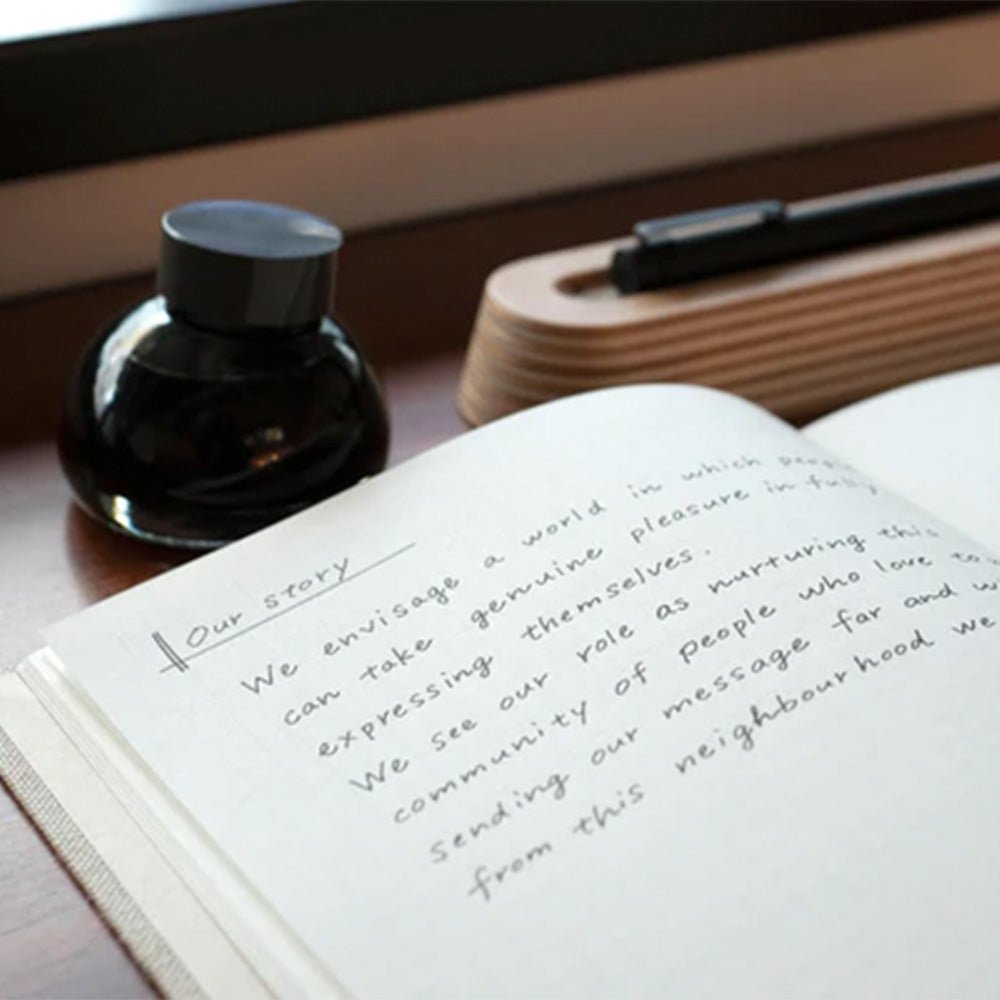 Our story
We envisage a world in which people
can take genuine pleasure in fully
expressing themselves.
We see our role as nurturing this
community of people who love to
sending our message far and
from this neighbourhood we